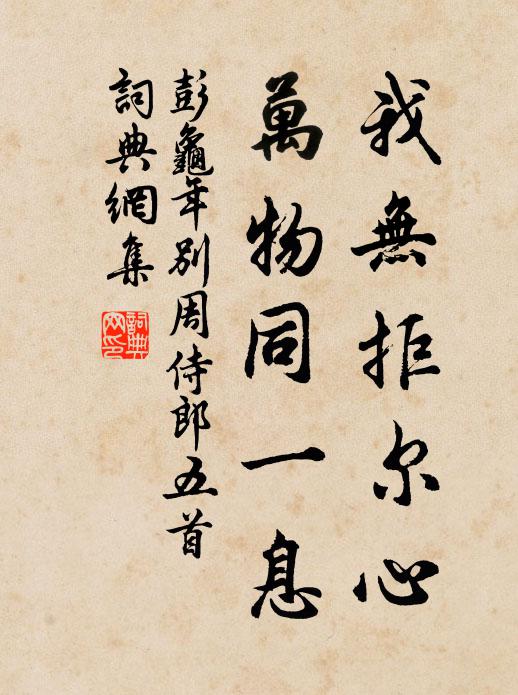 我無拒尔心
萬物同一息
彭龜年别周侍郎五首
詞典網集